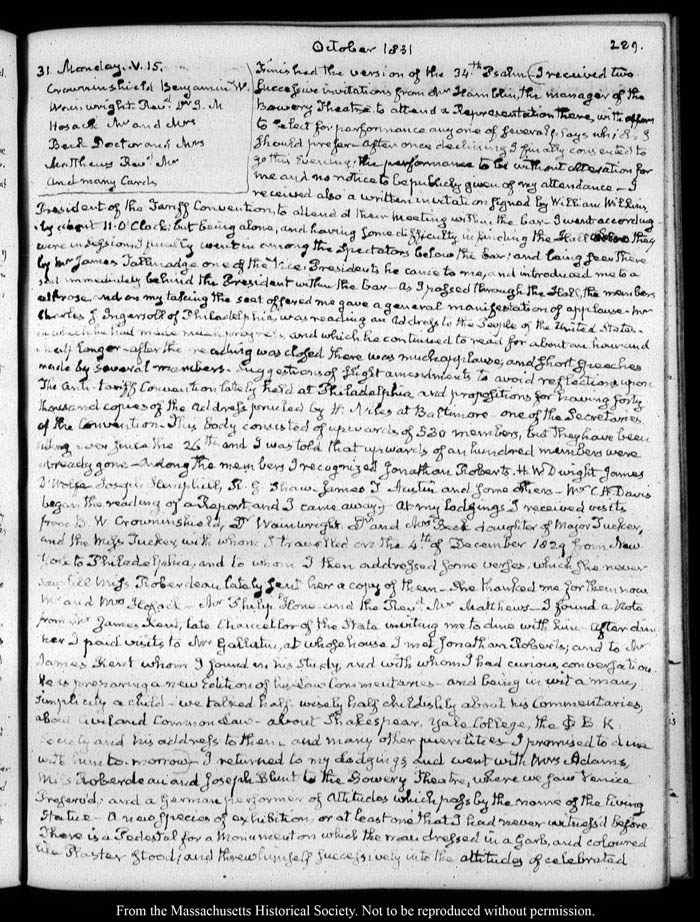 October 1831
229.
31. Monday. V. 15.
Crowninshield Benjamin W.
Wainwright. Revd. Dr. J. M
Hosack Mr and Mrs
Beck Doctor and Mrs
Matthews Revd. Mr
And many Cards
Finished the version of the 34th Psalm. I received two
successive invitations from Mr Hamblin, the manager of the
Bowery Theatre, to attend a Representation there, with offers
to select for performance any one of several Plays which I
should prefer. After once declining I finally consented to
go this Evening; the performance to be without alteration for
me and no notice to be publicly given of my attendance — I
received also a written invitation signed by William Wilkins
President of the Tariff Convention, to attend at their Meeting within the bar. I went according
ly about 11. O'Clock; but being alone, and having some difficulty in finding the Hall where they
were in session, I finally went in among the Spectators below the bar; and being seen there
by Mr James Tallmadge one of the Vice-Presidents he came to me, and introduced me to a
seat immediately behind the President within the bar — As I passed through the Hall, the members
all rose, and on my taking the seat offered me gave a general manifestation of applause — Mr
Charles J. Ingersoll of Philadelphia was reading an Address to the People of the United States —
in which he had made much progress, and which he continued to read for about an hour and
a half longer — after the reading was closed there was much applause, and short speeches
made by several members. Suggestions of slight amendments to avoid reflections upon
the Anti-tariff Convention lately held at Philadelphia, and propositions for having forty
thousand copies of the Address printed by H. Niles at Baltimore — one of the Secretaries
of the Convention. This body consisted of upwards of 530 members, but they have been
sitting ever since the 26th and I was told that upwards of an hundred members were
already gone — Among the members I recognized Jonathan Roberts. H. W. Dwight James
D'Wolfe Joseph Hemphill, R. G Shaw. James T. Austin and some others — Mr C. H. Davis
began the reading of a Report, and I came away. At my lodgings I received visits
from B. W Crowninshield, Dr Wainwright. Dr. and Mrs Beck daughter of Major Tucker,
and the Miss Tucker, with whom I travelled on the 4th. of December 1829 from New
York to Philadelphia, and to whom I then addressed some verses, which she never
saw till Miss Roberdeau lately sent her a copy of them — She thanked me for them now
Mr and Mrs Hosack — Mr Philip Hone and the Revd. Mr Matthews — I found a Note
from Mr James Kent, late Chancellor of the State inviting me to dine with him. After din
ner I paid visits to Mr Gallatin, at whose house I met Jonathan Roberts; and to Mr
James Kent whom I found in his Study, and with whom I had curious conversation.
He is preparing a new Edition of his Law Commentaries — and being in wit a man,
simplicity a child — we talked half wisely half childishly about his Commentaries,
about Civil and Common Law — about Shakespear, Yale College, the Φ B. K.
Society and his address to them and many other puerilities. I promised to dine
with him to-morrow — I returned to my lodgings and went with Mrs Adams,
Miss Roberdeau and Joseph Blunt to the Bowery Theatre, where we saw Venice
Preserv'd; and a German performer of Attitudes which pass by the name of the living
Statue — A new species of exhibition, or at least one that I had never witness'd before
There is a Pedestal for a Monument on which the man dressed in a Garb, and coloured
like Plaster stood; and threw himself successively into the attitudes of celebrated
From the Massachusetts Historical Society. Not to be reproduced without permission.